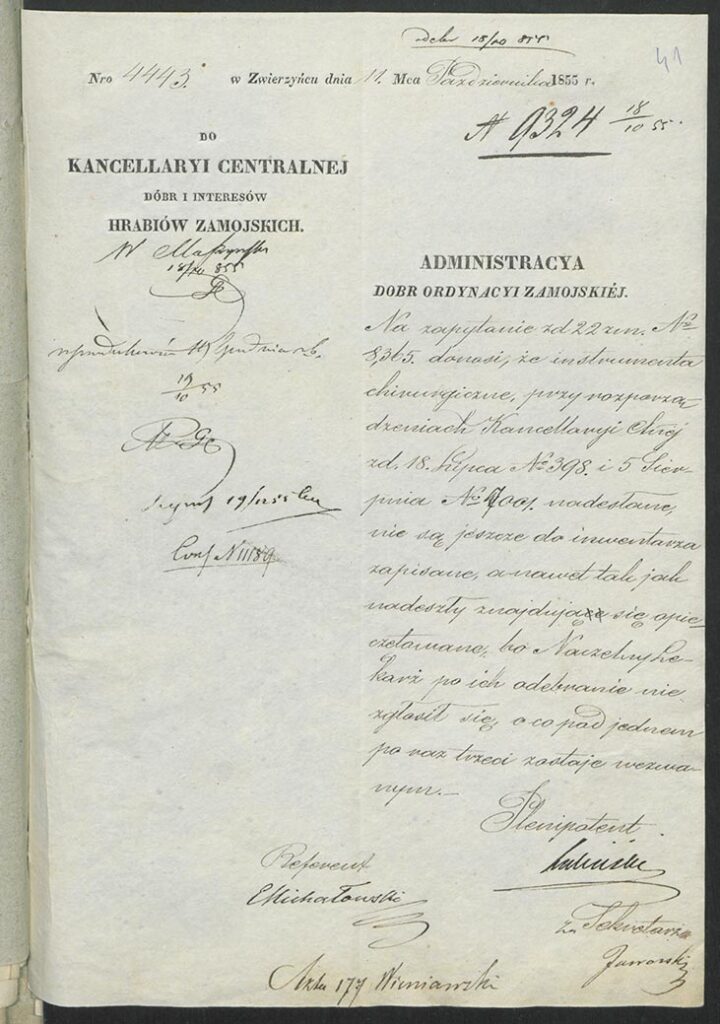 odebr 18/10 855
41
Nro 4443. w Zwierzyńcu dnia 11. Mca Października 1855 r.
N 9324 18/10 55.
DO
KANCELLARYI CENTRALNEJ
DÓBR I INTERESÓW
HRABIÓW ZAMOJSKICH.
W
18/10 855
19/10 55
19/10 55
ADMINISTRACYA
DOBR ORDYNACYI ZAMOJSKIÉJ.
Na zapytanie zd 22 zm. No
8,365. donosi, że instrumenta
chirurgiczne, przy rozporzą-
dzeniach Kancellaryi Clnej
zd. 18. Lipca No 398. i 5 Sier-
pnia No 7001. nadesłane,
nie są jeszcze do inwentarza
zapisane, a nawet tak jak
nadeszły znajdują się opie-
czętowane, bo Naczelny Le-
karz po ich odebranie nie
zgłosił się, o co pod jednem
po raz trzeci zostaje wezwa-
nym.—
Plenipotent
Referent
EMichałowski
za Sekretarza
Jaworski
177 Wieniawski